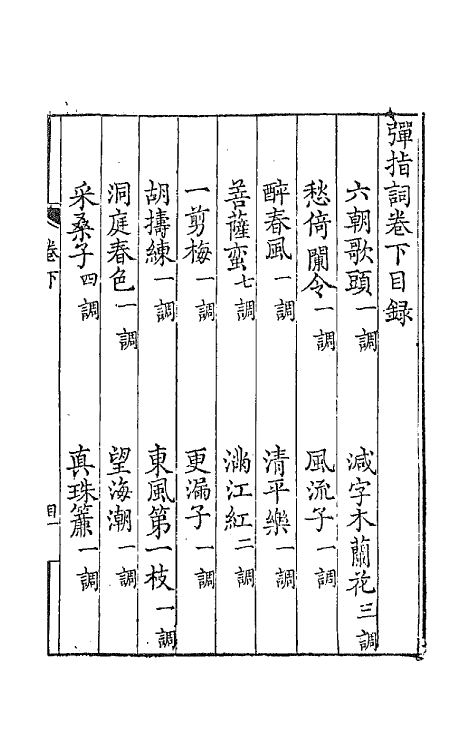 彈指詞卷下目録
六朝歌頭一調 減字木蘭花三調
愁倚闌令一調 風流子一調
醉春風一調 清平樂一調
菩薩蠻七調 滿江紅二調
一剪梅一調 更漏子一調
胡擣練一調 東風第一枝一調
洞庭春色一調 望海潮一調
采桑子四調 真珠簾一調
卷下 目一